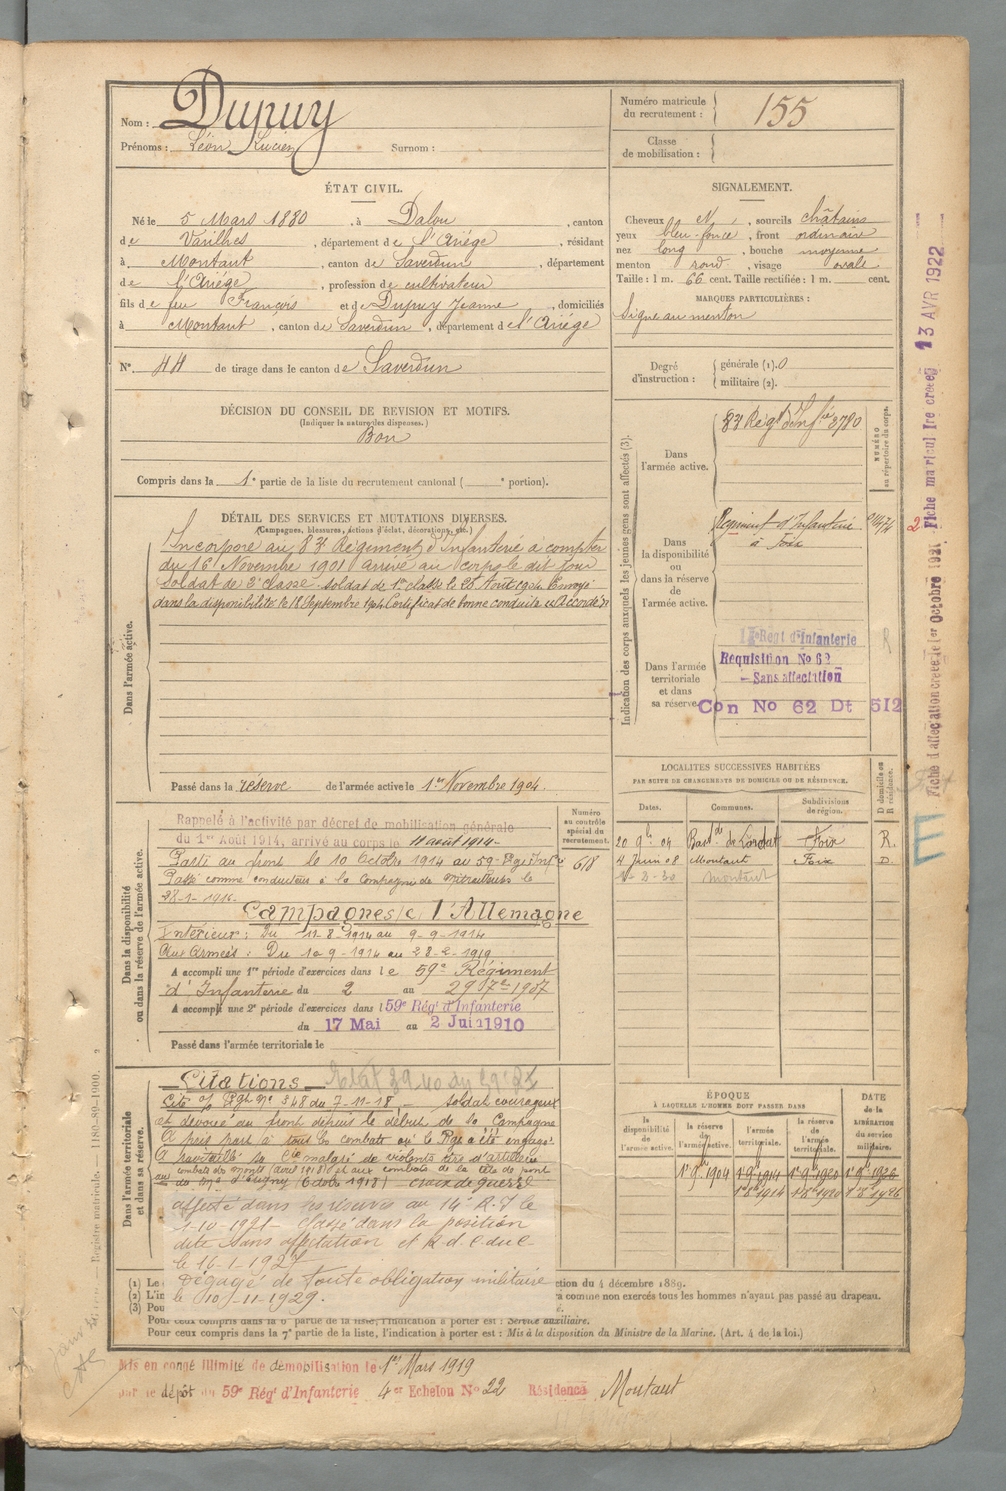 Nom : Dupuy
Prénoms : Léon Lucien Surnom :
Numéro matricule du recrutement : 155
Classe de mobilisation :
ÉTAT CIVIL.
Né le 5 Mars 1880, à Dalou, canton
de Varilhes, département de l'Ariège, résidant
à Montaut, canton de Saverdun, département
de l'Ariège, profession de cultivateur
fils de feu François et de Dupuy Jeanne, domiciliés
à Montaut, canton de Saverdun, département de l'Ariège
N° 44 de tirage dans le canton de Saverdun
DÉCISION DU CONSEIL DE REVISION ET MOTIFS.
(Indiquer la nature des dispenses.)
Bon
Compris dans la 1e partie de la liste du recrutement cantonal ( e portion).
SIGNALEMENT.
Cheveux N, sourcils châtains
yeux bleu-foncé, front ordinaire
nez long, bouche moyenne
menton rond, visage ovale
Taille : 1 m. 66 cent. Taille rectifiée : 1 m. cent.
MARQUES PARTICULIÈRES :
Signe au menton
Degré d'instruction : générale (1). 0
militaire (2).
DÉTAIL DES SERVICES ET MUTATIONS DIVERSES.
(Campagnes, blessures, actions d'éclat, décorations, etc.)
Dans l'armée active.
Incorporé au 83e Régiment d'Infanterie à compter
du 16 Novembre 1901 arrivé au corps le dit jour
soldat de 2e classe. soldat de 1re classe le 25 Août 1904. Envoyé
dans la disponibilité le 18 Septembre 1904 Certificat de bonne conduite "Accordé"
Passé dans la réserve de l'armée active le 1er Novembre 1904.
Indication des corps auxquels les jeunes gens sont affectés (3).
Dans l'armée active.
83e Régt d'Infie 3780
NUMÉRO au répertoire du corps.
Dans la disponibilité ou dans la réserve de l'armée active.
Régiment d'Infanterie
à Foix
Dans l'armée territoriale et dans sa réserve.
Régt d'Infanterie
Requisition No 62
- Sans affectation
Con No 62 Dt 512
R
Fiche d'affectation créée le 1er Octobre 1921
Fiche matricule créée 13 AVR 1922
LOCALITÉS SUCCESSIVES HABITÉES
PAR SUITE DE CHANGEMENTS DE DOMICILE OU DE RÉSIDENCE.
Dates. Communes. Subdivisions de région. D domicile ou R résidence.
20 9bre 04 Foix R.
4 Juin 08 Montaut Foix D.
Montaut
Dans la disponibilité ou dans la réserve de l'armée active.
Numéro au contrôle spécial du recrutement.
618
Rappelé à l'activité par décret de mobilisation générale
du 1er Août 1914, arrivé au corps le 11 août 1914.
Parti au front le 10 Octobre 1914 au 59e Rgt Infie
Passé comme conducteur à la Compagnie de mitrailleuses le
28-1-1916.
Campagnes c/ l'Allemagne
Intérieur : Du 11-8-1914 au 9-9-1914
Aux Armées : Du 10-9-1914 au 28-2-1919
A accompli une 1re période d'exercices dans le 59e Régiment
d'Infanterie du 2 au 29 7bre 1907
A accompli une 2e période d'exercices dans l 59e Régt d'Infanterie
du 17 Mai au 2 Juin 1910
Passé dans l'armée territoriale le
Dans l'armée territoriale et dans sa réserve.
Citations
Cité o/ Rgt No 348 du 7-11-18 - soldat courageux
et dévoué au front depuis le début de la Campagne
A pris part à tous les combats où le Rgt a été engagé
A ravitaillé sa Cie malgré de violents tirs d'artillerie
combats des monts (avril 1918) et aux combats de la tête de pont
(Octobre 1918) croix de guerre
affecté dans les réserves au 14e R.I le
1-10-1921 - Classé dans la position
dite sans affectation
le 16-1-1927
Dégagé de toute obligation militaire
le 10-11-1929.
ÉPOQUE
À LAQUELLE L'HOMME DOIT PASSER DANS
la disponibilité de l'armée active. la réserve de l'armée active. l'armée territoriale. la réserve de l'armée territoriale.
DATE de la LIBÉRATION du service militaire.
1er 9bre 1904 1er 9bre 1914 1er 9bre 1920 1er 9bre 1926
1er 8bre 1914 1er 8bre 1920 1er 8bre 1926
(1) Le
ction du 4 décembre 1889.
(2) L'in
comme non exercés tous les hommes n'ayant pas passé au drapeau.
(3) Pou
Pour ceux compris dans la 6e partie de la liste, l'indication à porter est : Service auxiliaire.
Pour ceux compris dans la 7e partie de la liste, l'indication à porter est : Mis à la disposition du Ministre de la Marine. (Art. 4 de la loi.)
Mis en congé illimité de démobilisation le 1er Mars 1919
par le dépôt du 59e Régt d'Infanterie 4er Echelon No 22 Résidence Montaut
Registre matricule. - 1180-89-1900.